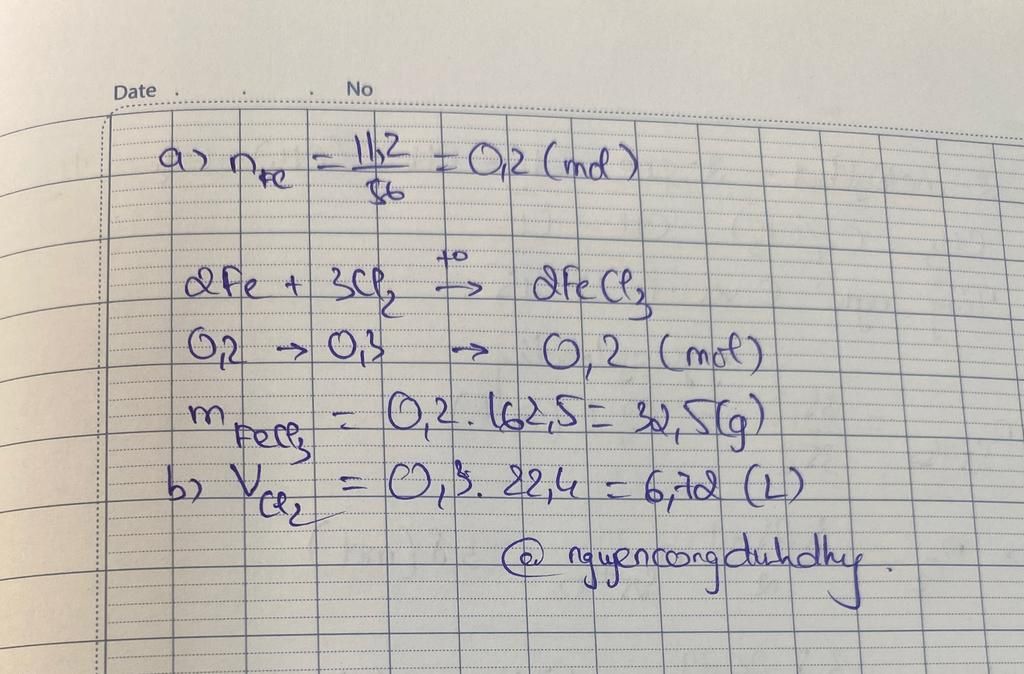 Date . . . No
a) nFe = 11,2/56 = 0,2 (mol)
2Fe + 3Cl2 t° → 2FeCl3
0,2 → 0,3 → 0,2 (mol)
mFeCl3 = 0,2 . 162,5 = 32,5(g)
b) VCl2 = 0,3 . 22,4 = 6,72 (L)
@ nguyencongduhdhy .